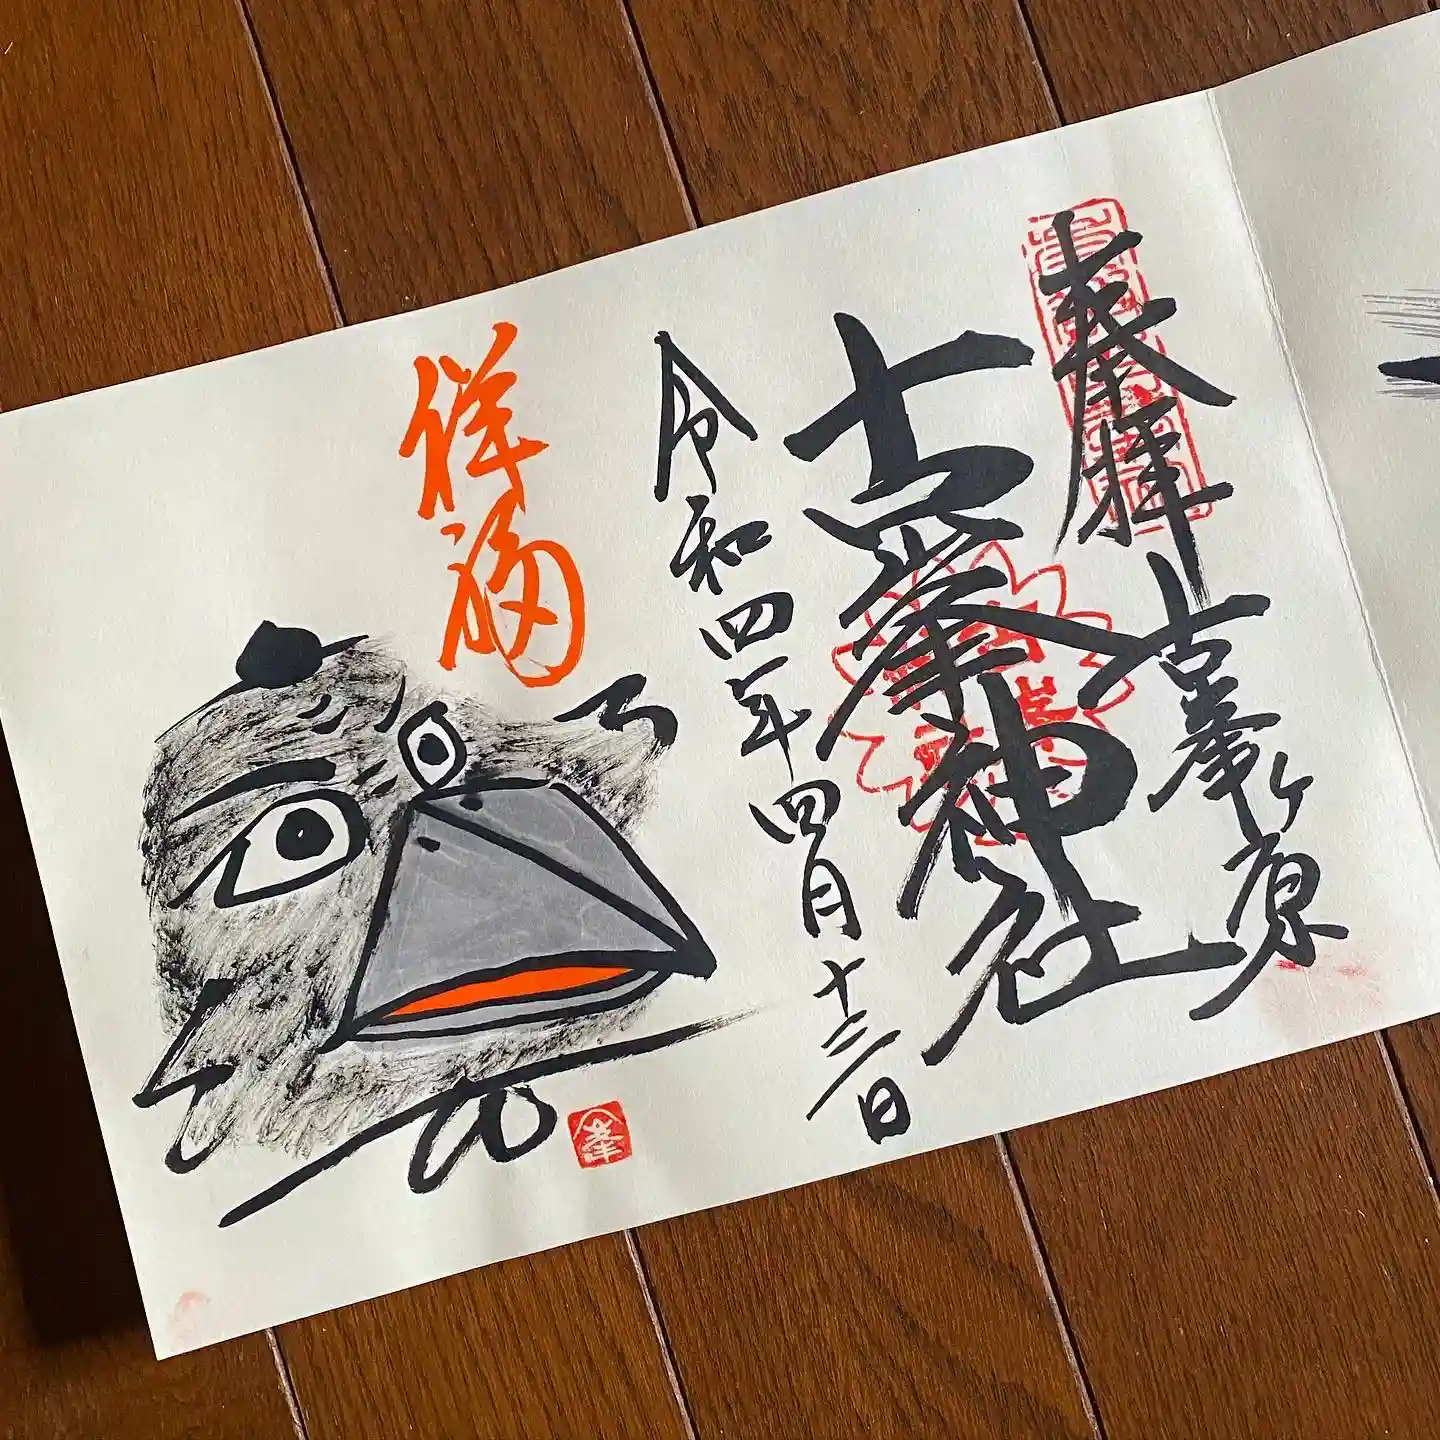 奉拝
古峯ヶ原
古峯神社
令和四年四月十三日
祥福
峯